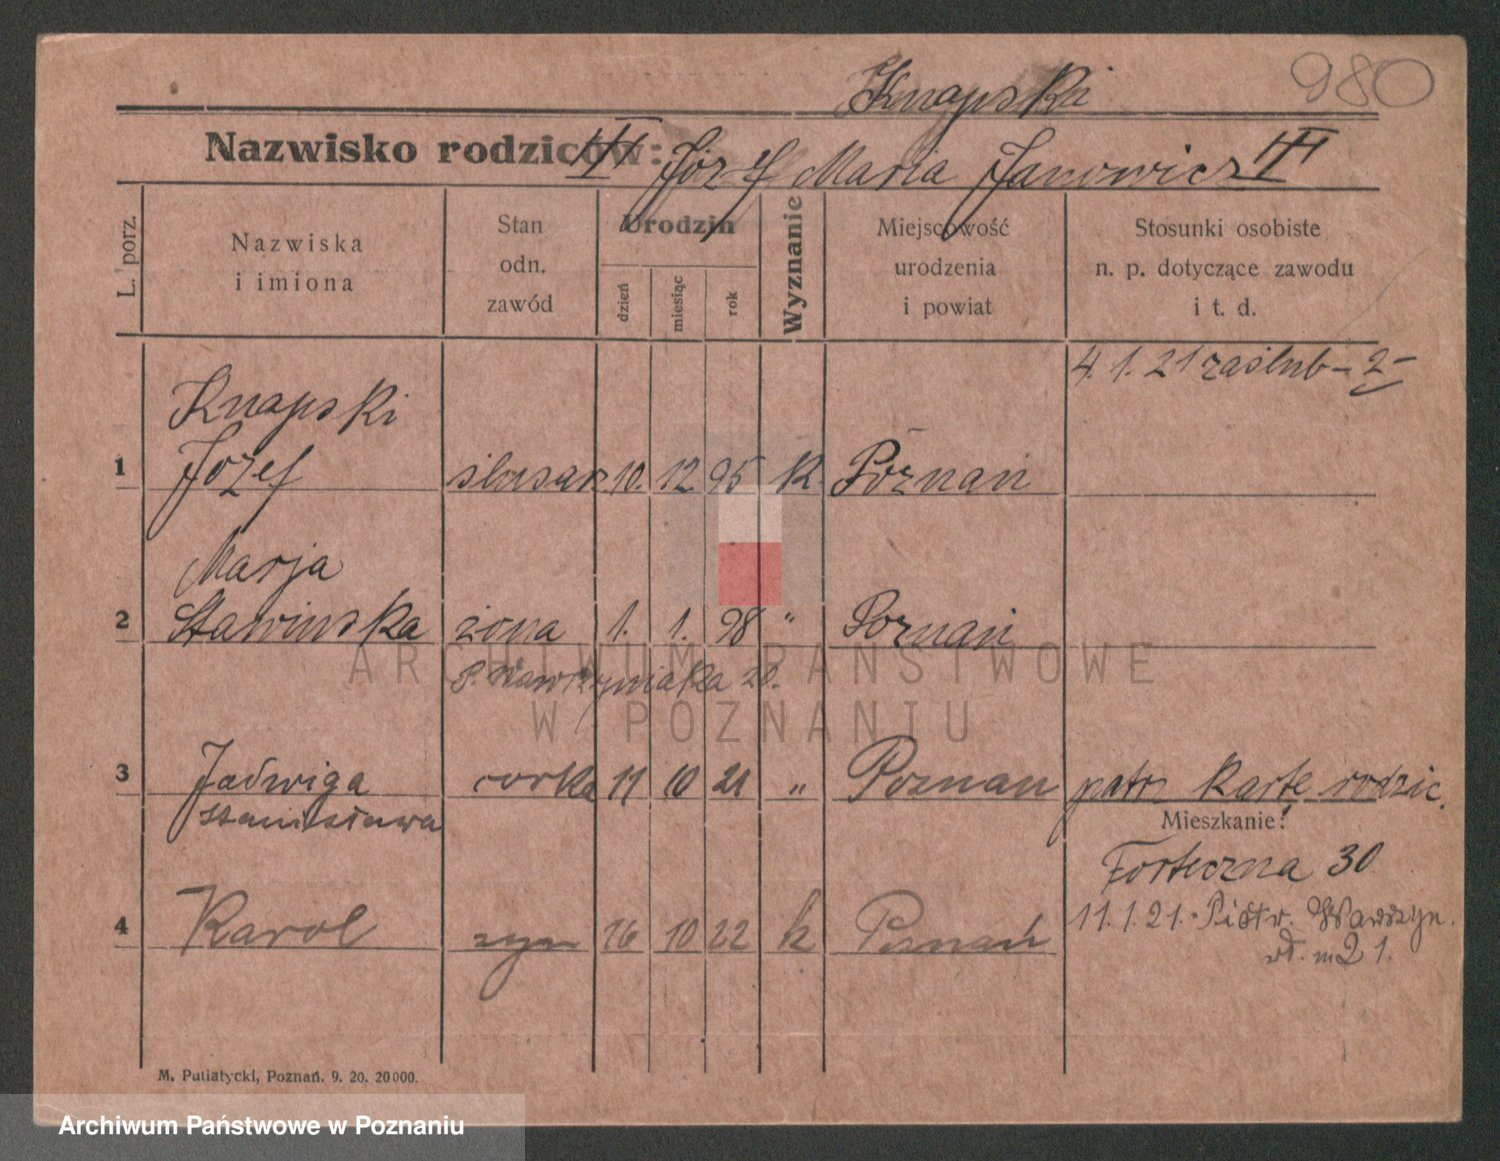 980
Knapski
Nazwisko rodziców: Józef Maria Janowicz
L. porz.
Nazwiska
i imiona
Stan
odn.
zawód
Urodzin
dzień
miesiąc
rok
Wyznanie
Miejscowość
urodzenia
i powiat
Stosunki osobiste
n. p. dotyczące zawodu
i t. d.
4. 1. 21 zaślub - 2 -
Knapski
1 Józef ślusarz 10. 12. 95 k. Poznań
Marja
2 Stawinska żona 1. 1. 98 " Poznań
P. Wawrzyniaka 20.
3 Jadwiga corka 11 10 21 " Poznan patrz kartę rodzic.
Stanisława
Mieszkanie:
Forteczna 30
4 Karol syn 16 10 22 k Poznań
11. 1. 21. Piotr. Wawrzyn.
21.
M. Putiatycki, Poznań. 9. 20. 20000.
ARCHIWUM PAŃSTWOWE
W POZNANIU
Archiwum Państwowe w Poznaniu